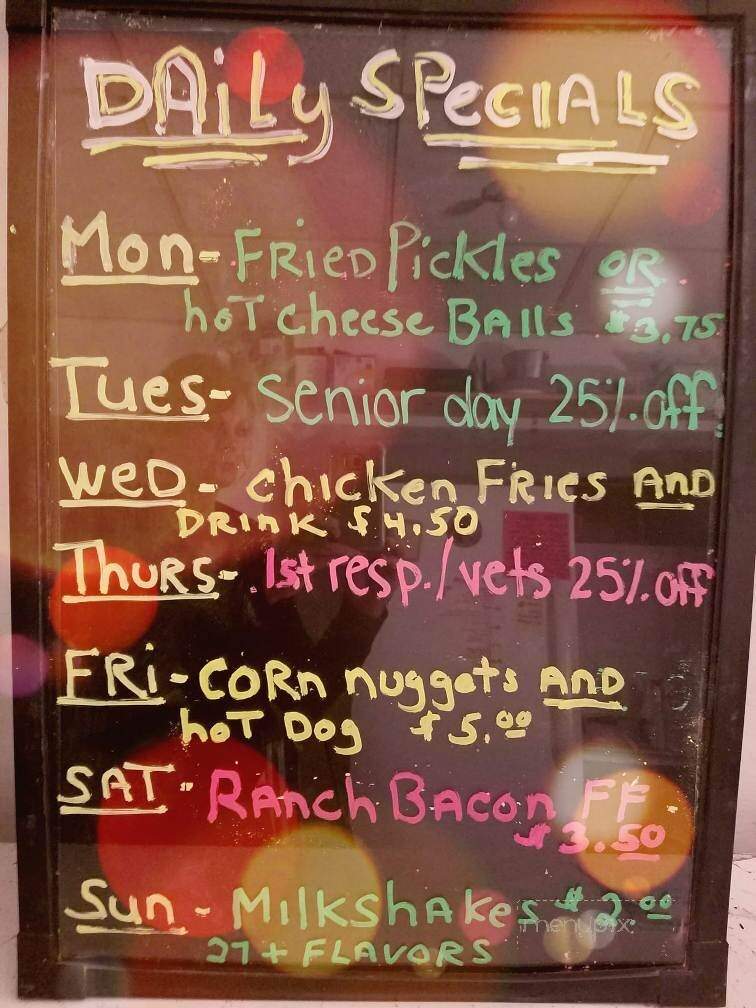 DAiLy SPeciALS
Mon- FRieD Pickles OR
hoT cheese BAlls $3.75
Tues- Senior day 25% off
WeD- chicken FRies AnD
DRink $4.50
ThuRS- 1st resp./vets 25% off
FRi- CoRn nuggets AND
hoT Dog $5.00
SAT- RAnch BAcon FF
$3.50
Sun- MilkshAkes $2.00
menupix
27+ FLAVORS